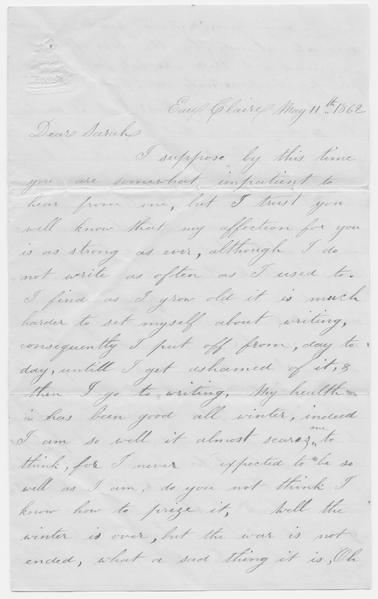 Eau Claire May 11th 1862
Dear Sarah
I suppose by this time
you are somewhat impatient to
hear from me, but I trust you
well know that my affection for you
is as strong as ever, although I do
not write as often as I used to.
I find as I grow old it is much
harder to set myself about writing,
consequently I put off from, day to
day, untill I get ashamed of it, &
then I go to writing, My health
is has been good all winter, indeed
I am so well it almost scares me to
think, for I never expected to be so
well as I am, do you not think I
know how to prize it, Well the
winter is over, but the war is not
ended, what a sad thing it is, Oh